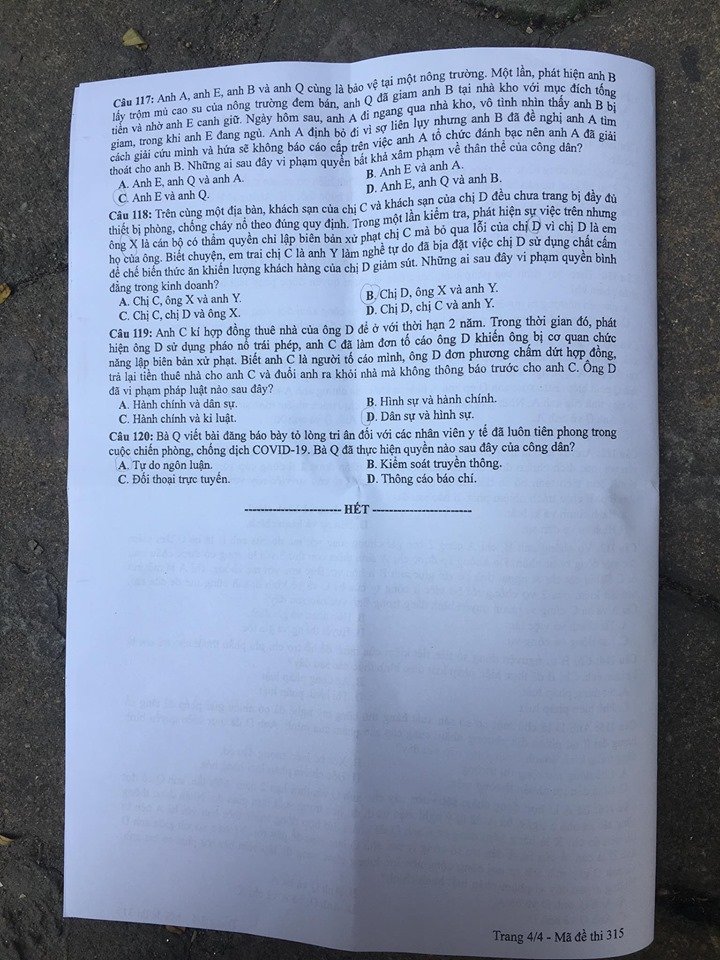 Câu 117: Anh A, anh E, anh B và anh Q cùng là bảo vệ tại một nông trường. Một lần, phát hiện anh B
lấy trộm mủ cao su của nông trường đem bán, anh Q đã giam anh B tại nhà kho với mục đích tống
tiền và nhờ anh E canh giữ. Ngày hôm sau, anh A đi ngang qua nhà kho, vô tình nhìn thấy anh B bị
giam, trong khi anh E đang ngủ. Anh A định bỏ đi vì sợ liên lụy nhưng anh B đã đề nghị anh A tìm
cách giải cứu mình và hứa sẽ không báo cáo cấp trên việc anh A tổ chức đánh bạc nên anh A đã giải
thoát cho anh B. Những ai sau đây vi phạm quyền bất khả xâm phạm về thân thể của công dân?
A. Anh E, anh Q và anh A. B. Anh E và anh A.
C. Anh E và anh Q. D. Anh E, anh Q và anh B.
Câu 118: Trên cùng một địa bàn, khách sạn của chị C và khách sạn của chị D đều chưa trang bị đầy đủ
thiết bị phòng, chống cháy nổ theo đúng quy định. Trong một lần kiểm tra, phát hiện sự việc trên nhưng
ông X là cán bộ có thẩm quyền chỉ lập biên bản xử phạt chị C mà bỏ qua lỗi của chị D vì chị D là em
họ của ông. Biết chuyện, em trai chị C là anh Y làm nghề tự do đã bịa đặt việc chị D sử dụng chất cấm
để chế biến thức ăn khiến lượng khách hàng của chị D giảm sút. Những ai sau đây vi phạm quyền bình
đẳng trong kinh doanh?
A. Chị C, ông X và anh Y. B. Chị D, ông X và anh Y.
C. Chị C, chị D và ông X. D. Chị D, chị C và anh Y.
Câu 119: Anh C kí hợp đồng thuê nhà của ông D để ở với thời hạn 2 năm. Trong thời gian đó, phát
hiện ông D sử dụng pháo nổ trái phép, anh C đã làm đơn tố cáo ông D khiến ông bị cơ quan chức
năng lập biên bản xử phạt. Biết anh C là người tố cáo mình, ông D đơn phương chấm dứt hợp đồng,
trả lại tiền thuê nhà cho anh C và đuổi anh ra khỏi nhà mà không thông báo trước cho anh C. Ông D
đã vi phạm pháp luật nào sau đây?
A. Hành chính và dân sự. B. Hình sự và hành chính.
C. Hành chính và kỉ luật. D. Dân sự và hình sự.
Câu 120: Bà Q viết bài đăng báo bày tỏ lòng tri ân đối với các nhân viên y tế đã luôn tiên phong trong
cuộc chiến phòng, chống dịch COVID-19. Bà Q đã thực hiện quyền nào sau đây của công dân?
A. Tự do ngôn luận. B. Kiểm soát truyền thông.
C. Đối thoại trực tuyến. D. Thông cáo báo chí.
------------------------ HẾT ------------------------
Trang 4/4 - Mã đề thi 315